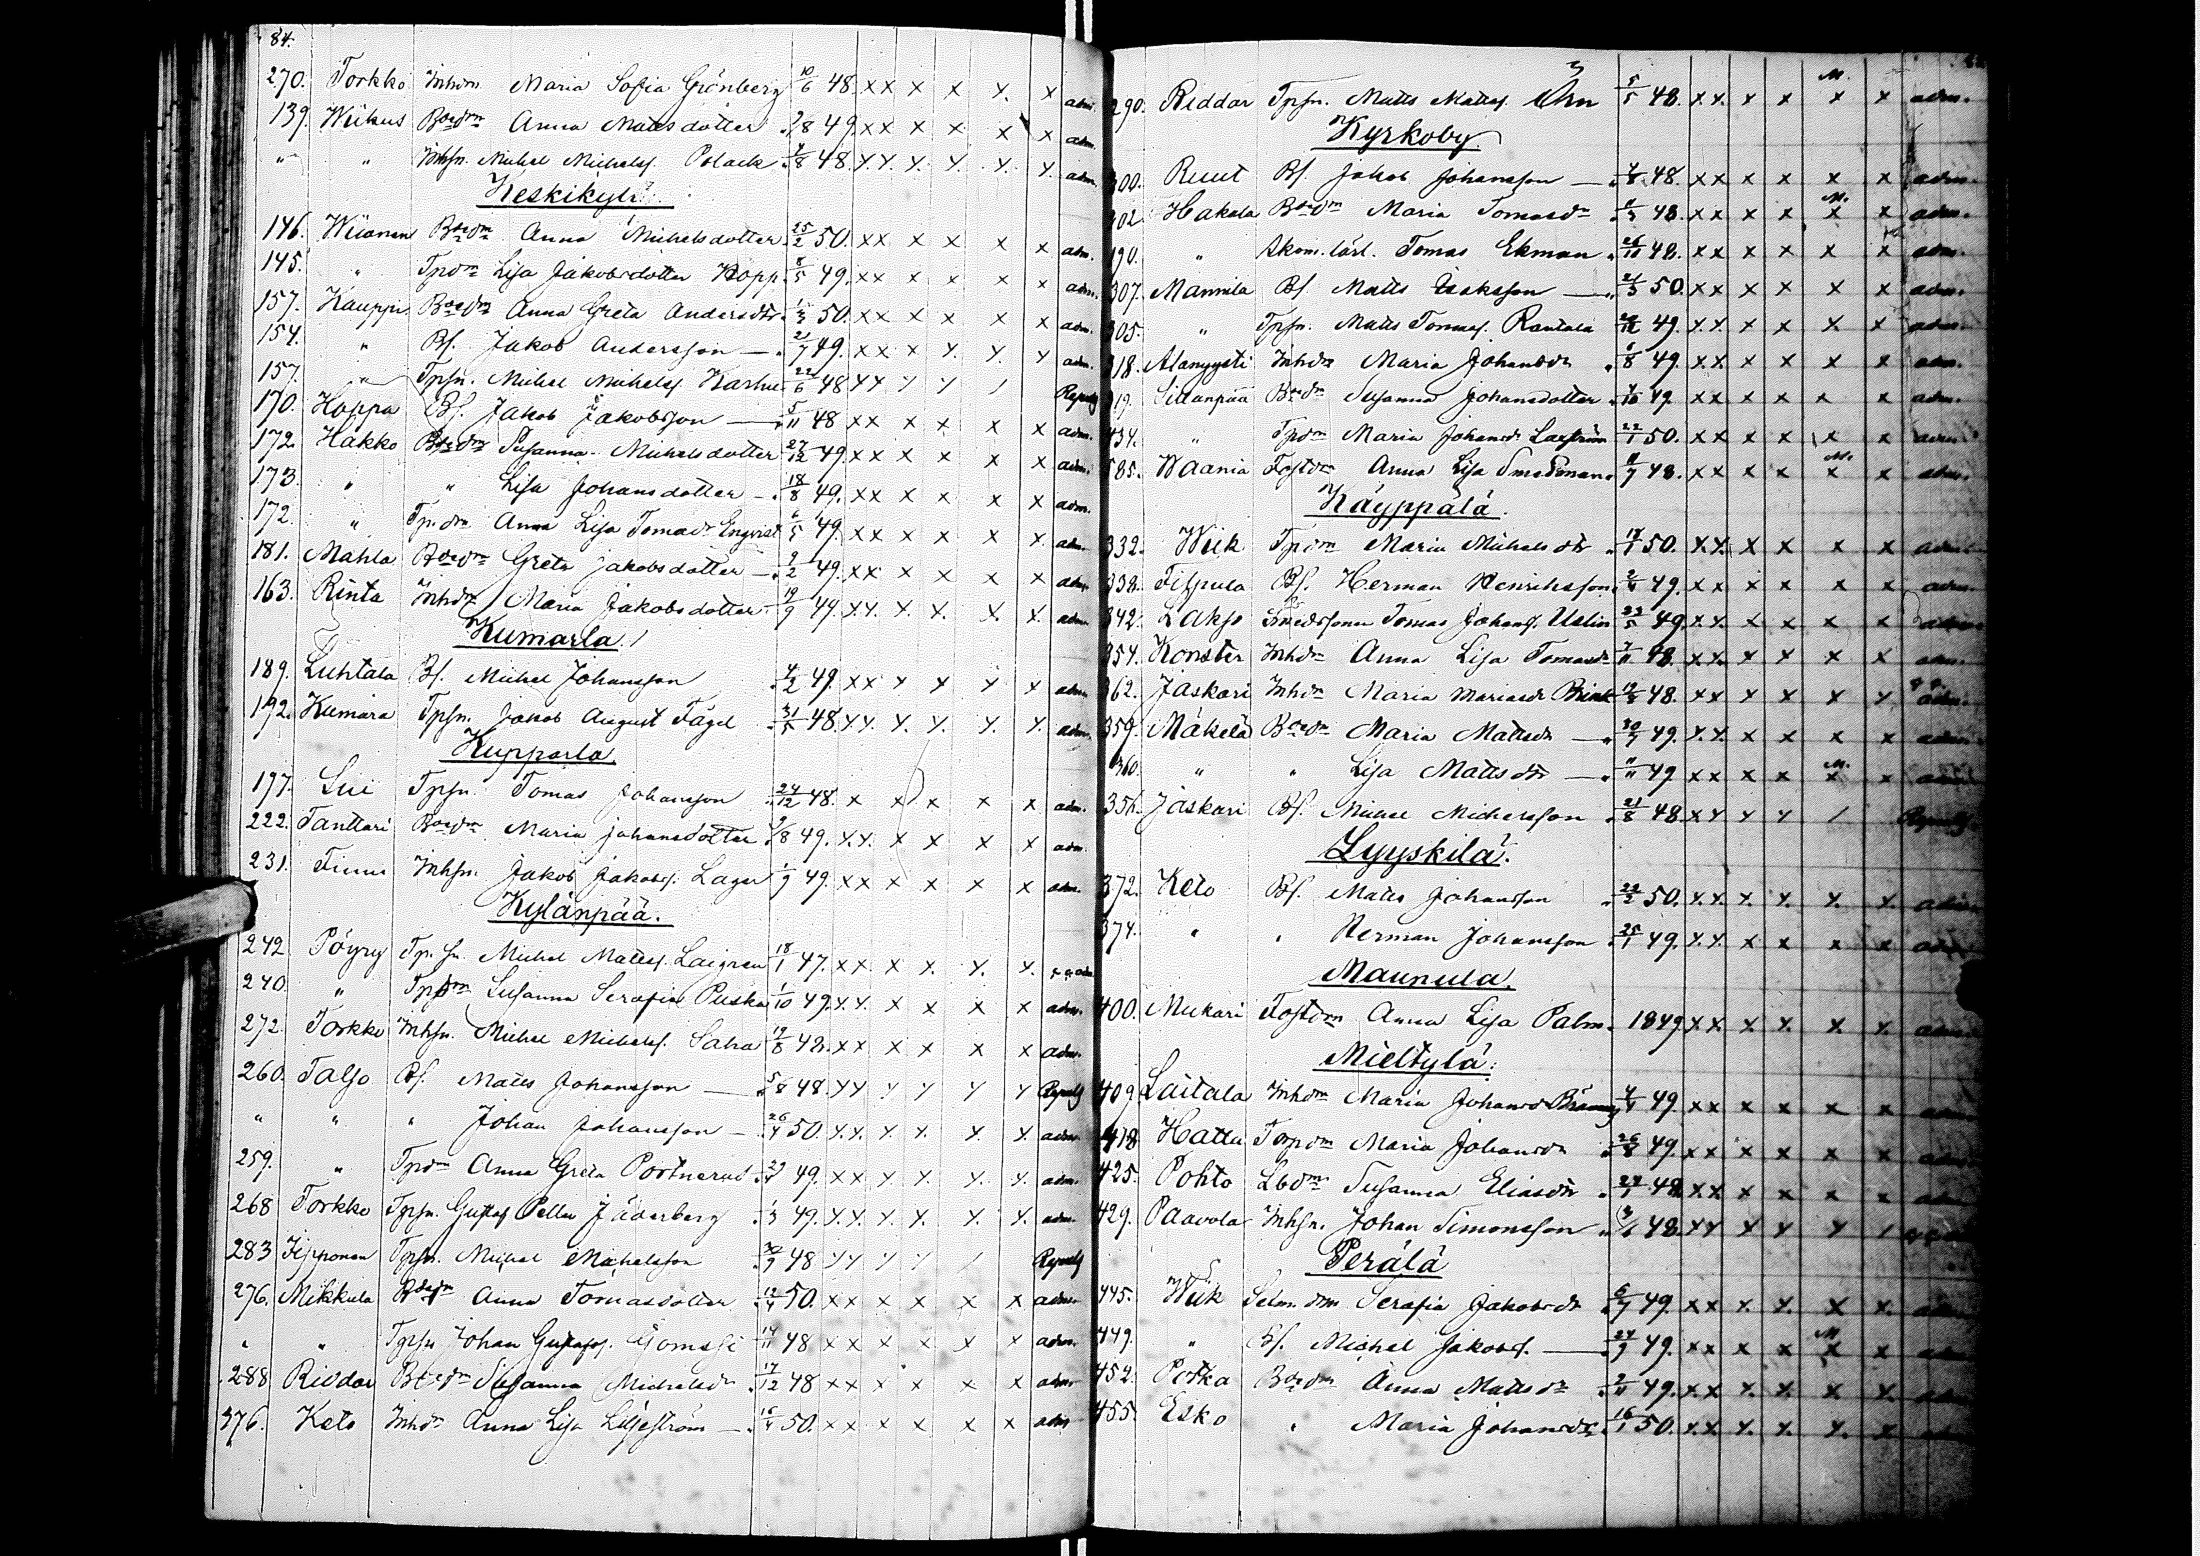 84.
270. Torkko Inhdr Maria Sofia Grönberg 10/6 48. xx x x x. x adm.
139. Wiikus Bdedr Anna Mattsdotter 2/8 49. xx x x x x adm.
" " Inhsn. Michel Michelss. Polack 4/8 48. x.x. x. x. x. x. adm.
Keskikylä.
146. Wiianen Bdedr Anna Michelsdotter 25/2 50. xx x x x x adm.
145. " Tpdr Lisa Jakobsdotter Kopp. 8/5 49. xx x x x x adm.
157. Kauppi Bdedr Anna Greta Andersdtr. 1/3 50. xx x x x x adm.
154. " Bs. Jakob Andersson — 21/7 49. xx x x. x. x adm.
157. " Tpsn. Michel Michelss Karhu 22/6 48 xx x x / Repmtg
170. Hoppa Bs. Jakob Jakobsson — 5/11 48 xx x x x x adm.
172. Hakko Bdedr Susanna Michelsdotter 27/12 49. xx x x x x adm.
173. " " Lisa Johansdotter — 18/8 49. xx x x x x adm.
172. " Tp.dr Anna Lisa Tomasdr Enqvist 6/5 49. xx x x x x. adm.
181. Mahla Bdedr Greta Jakobsdotter — 9/2 49. xx x x x x adm.
163. Rinta Inhdr Maria Jakobsdotter 19/9 49. xx. x. x. x. x. adm.
Kumarla.
189. Luhtala Bs. Michel Johansson 4/2 49. xx x x x x adm.
192. Kumara Tpsn. Jakob August Fågel 31/5 48. xx. x. x. x. x. adm.
Kupparla.
197. Sui Tpsn. Tomas Johansson 24/12 48. x x x x x adm.
222. Tanttari Bdedr Maria Johansdotter 9/8 49. x.x. x x x x adm.
231. Finni Inhsn. Jakob Jakobss. Lager 1/9 49. xx x x x x adm.
Kylänpää.
242. Pöyry Tp.sn. Michel Mattss. Laigren 18/1 47. xx. x x. x. x. adm.
240. " Tpdr Susanna Serafia Puska 1/10 49. x.x. x x x x adm.
272. Torkko Inhsn. Michel Michelss. Saha 19/8 48. xx x x x x adm.
260. Taljo Bs. Matts Johansson — 5/8 48. xx x x x x Repmtg
" " " Johan Johansson — 26/4 50. x.x. x. x. x. x. adm.
259. " Tpdr Anna Greta Portnerus 29/4 49. xx x x x. x. adm.
268 Torkko Tpsn. Gustaf Pelle Jäderberg 1/3 49. x.x. x. x. x. x. adm.
283 Jipponen Tpsn. Michel Michelsson 30/9 48 xx x x / Repmtg
276. Mikkula Bdedr Anna Tomasdotter 12/4 50. xx x x x x adm.
" " Tpsn Johan Gustafss. Gomsji 14/11 48 xx x x x x adm.
288 Riddar Bdedr Susanna Michelsdr 17/12 48 xx x x x x adm
376. Keto Inhdr Anna Lisa Liljeström — 16/4 50. xx x x x x adm
290. Riddar Tpsn. Matts Mattss. Öhn 5/5 48. x.x. x x x x adm.
Kyrkoby.
300. Ruut Bs. Jakob Johansson — 4/8 48. xx x x x x adm.
302. Hakola Bdedr Maria Tomasdr 11/3 48. xx x x x x adm.
190. " Skom.lärl. Tomas Ekman 26/10 48. xx x x x x adm.
307. Mannila Bs Matts Isaksson — 21/3 50. xx x x x x adm.
305. " Tpsn. Matts Tomass. Rantala 49. x.x x x x x adm.
318. Alanyysti Inhdr Maria Johansdr 6/8 49. xx x x x x adm.
319. Sillanpää Bdedr Susanna Johansdotter 4/10 49. xx x x x x adm.
434. " Tpdr Maria Johansdr Laxström 22/1 50. xx x x x x adm.
585. Waania Fostdr Anna Lisa Smedsman 11/7 48. xx x x x x adm.
Käyppälä.
332. Wiik Tpdr Maria Michelsdtr 17/1 50. x.x. x x x x adm.
338. Filpula Bs. Herman Henriksson 2/4 49. xx x x x x adm.
342. Lakso Smedssonen Tomas Johanss. Uslin 23/5 49. x.x. x x x x adm.
354. Konster Inhdr Anna Lisa Tomasdr 7/11 48. xx. x x x x. adm.
362. Jaskari Inhdr Maria Mariasdr 12/8 48. xx x x x x adm.
359. Mäkelä Bdedr Maria Mattsdr — 30/7 49. x.x. x x x x adm.
360. " " Lisa Mattsdtr — 11/11 49 xx x x x x adm
356. Jaskari Bs. Michel Michelsson 21/8 48. xx x x / Repmtg
Lyyskilä.
372. Keto Bs. Matts Johansson 22/2 50. x.x. x. x. x. x. adm.
374. " " Herman Johansson 25/1 49. x.x. x x x x adm.
Maunula.
400. Mukari Fostdr Anna Lisa Palm. 1849 xx x x. x x. adm.
Mieltylä.
409 Laitala Inhdr Maria Johansdr 4/4 49. xx x x x x adm
418. Hattu Torpdr Maria Johansdr 26/8 49. xx x x x x adm
425. Pohto Lbdr Susanna Eliasdtr 24/1 48. xx x x x x adm
429. Paavola Inhsn. Johan Simonsson 3/6 48. xx x x x /
Perälä
445. Wiik Selm.dr Serafia Jakobsdr 6/7 49. xx x. x. x x. adm
449. " Bs. Michel Jakobs. — 24/9 49. xx x x x x adm
452. Potka Bdedr Anna Mattsdr 2/11 49. xx x. x. x x. adm
455. Esko " Maria Johansdr. 16/1 50. x.x x. x. x. x. adm